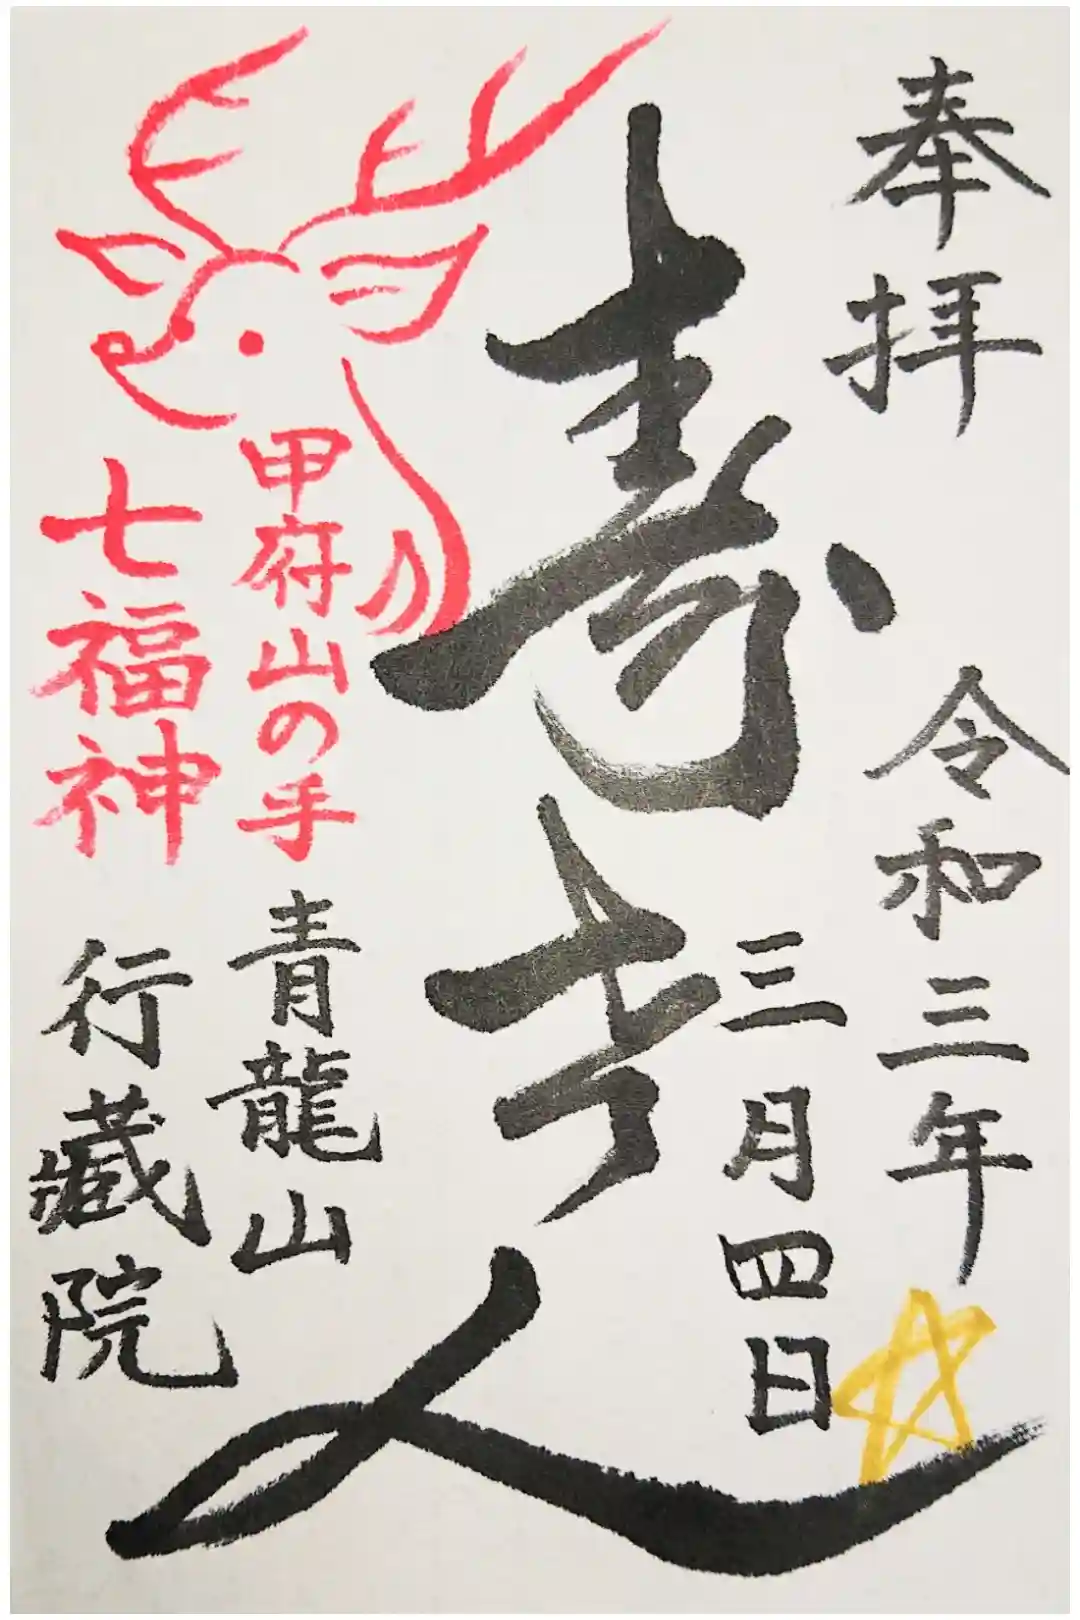 奉拝
令和三年
三月四日
寿老人
甲府山の手
七福神
青龍山
行蔵院